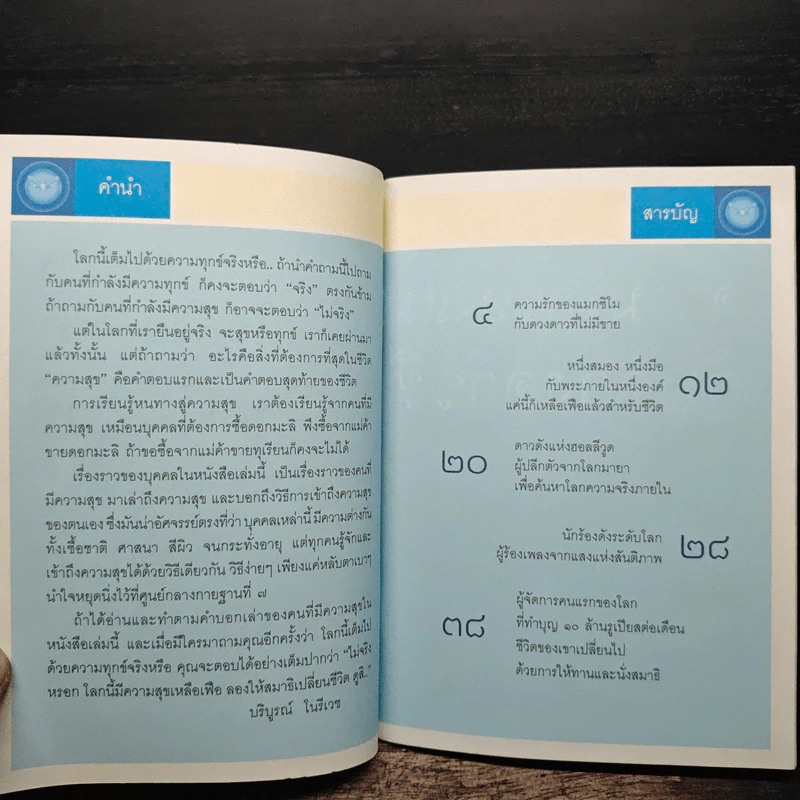 คำนำ
โลกนี้เต็มไปด้วยความทุกข์จริงหรือ.. ถ้านำคำถามนี้ไปถาม
กับคนที่กำลังมีความทุกข์ ก็คงจะตอบว่า “จริง” ตรงกันข้าม
ถ้าถามกับคนที่กำลังมีความสุข ก็อาจจะตอบว่า “ไม่จริง”
แต่ในโลกที่เรายืนอยู่จริง จะสุขหรือทุกข์ เราก็เคยผ่านมา
แล้วทั้งนั้น แต่ถ้าถามว่า อะไรคือสิ่งที่ต้องการที่สุดในชีวิต
“ความสุข” คือคำตอบแรกและเป็นคำตอบสุดท้ายของชีวิต
การเรียนรู้หนทางสู่ความสุข เราต้องเรียนรู้จากคนที่มี
ความสุข เหมือนบุคคลที่ต้องการซื้อดอกมะลิ พึงซื้อจากแม่ค้า
ขายดอกมะลิ ถ้าขอซื้อจากแม่ค้าขายทุเรียนก็คงจะไม่ได้
เรื่องราวของบุคคลในหนังสือเล่มนี้ เป็นเรื่องราวของคนที่
มีความสุข มาเล่าถึงความสุข และบอกถึงวิธีการเข้าถึงความสุข
ของตนเอง ซึ่งมันน่าอัศจรรย์ตรงที่ว่า บุคคลเหล่านี้ มีความต่างกัน
ทั้งเชื้อชาติ ศาสนา สีผิว จนกระทั่งอายุ แต่ทุกคนรู้จักและ
เข้าถึงความสุขได้ด้วยวิธีเดียวกัน วิธีง่ายๆ เพียงแค่หลับตาเบาๆ
นำใจหยุดนิ่งไว้ที่ศูนย์กลางกายฐานที่ ๗
ถ้าได้อ่านและทำตามคำบอกเล่าของคนที่มีความสุขใน
หนังสือเล่มนี้ และเมื่อมีใครมาถามคุณอีกครั้งว่า โลกนี้เต็มไป
ด้วยความทุกข์จริงหรือ คุณจะตอบได้อย่างเต็มปากว่า “ไม่จริง
หรอก โลกนี้มีความสุขเหลือเฟือ ลองให้สมาธิเปลี่ยนชีวิต ดูสิ..”
บริบูรณ์ โนรีเวช
สารบัญ
๔ ความรักของแมกซิโม
กับดวงดาวที่ไม่มีขาย
หนึ่งสมอง หนึ่งมือ
กับพระภายในหนึ่งองค์ ๑๒
แค่นี้ก็เหลือเฟือแล้วสำหรับชีวิต
ดาวดังแห่งฮอลลีวูด
๒๐ ผู้ปลีกตัวจากโลกมายา
เพื่อค้นหาโลกความจริงภายใน
นักร้องดังระดับโลก ๒๘
ผู้ร้องเพลงจากแสงแห่งสันติภาพ
ผู้จัดการคนแรกของโลก
๓๘ ที่ทำบุญ ๑๐ ล้านรูเปียสต่อเดือน
ชีวิตของเขาเปลี่ยนไป
ด้วยการให้ทานและนั่งสมาธิ